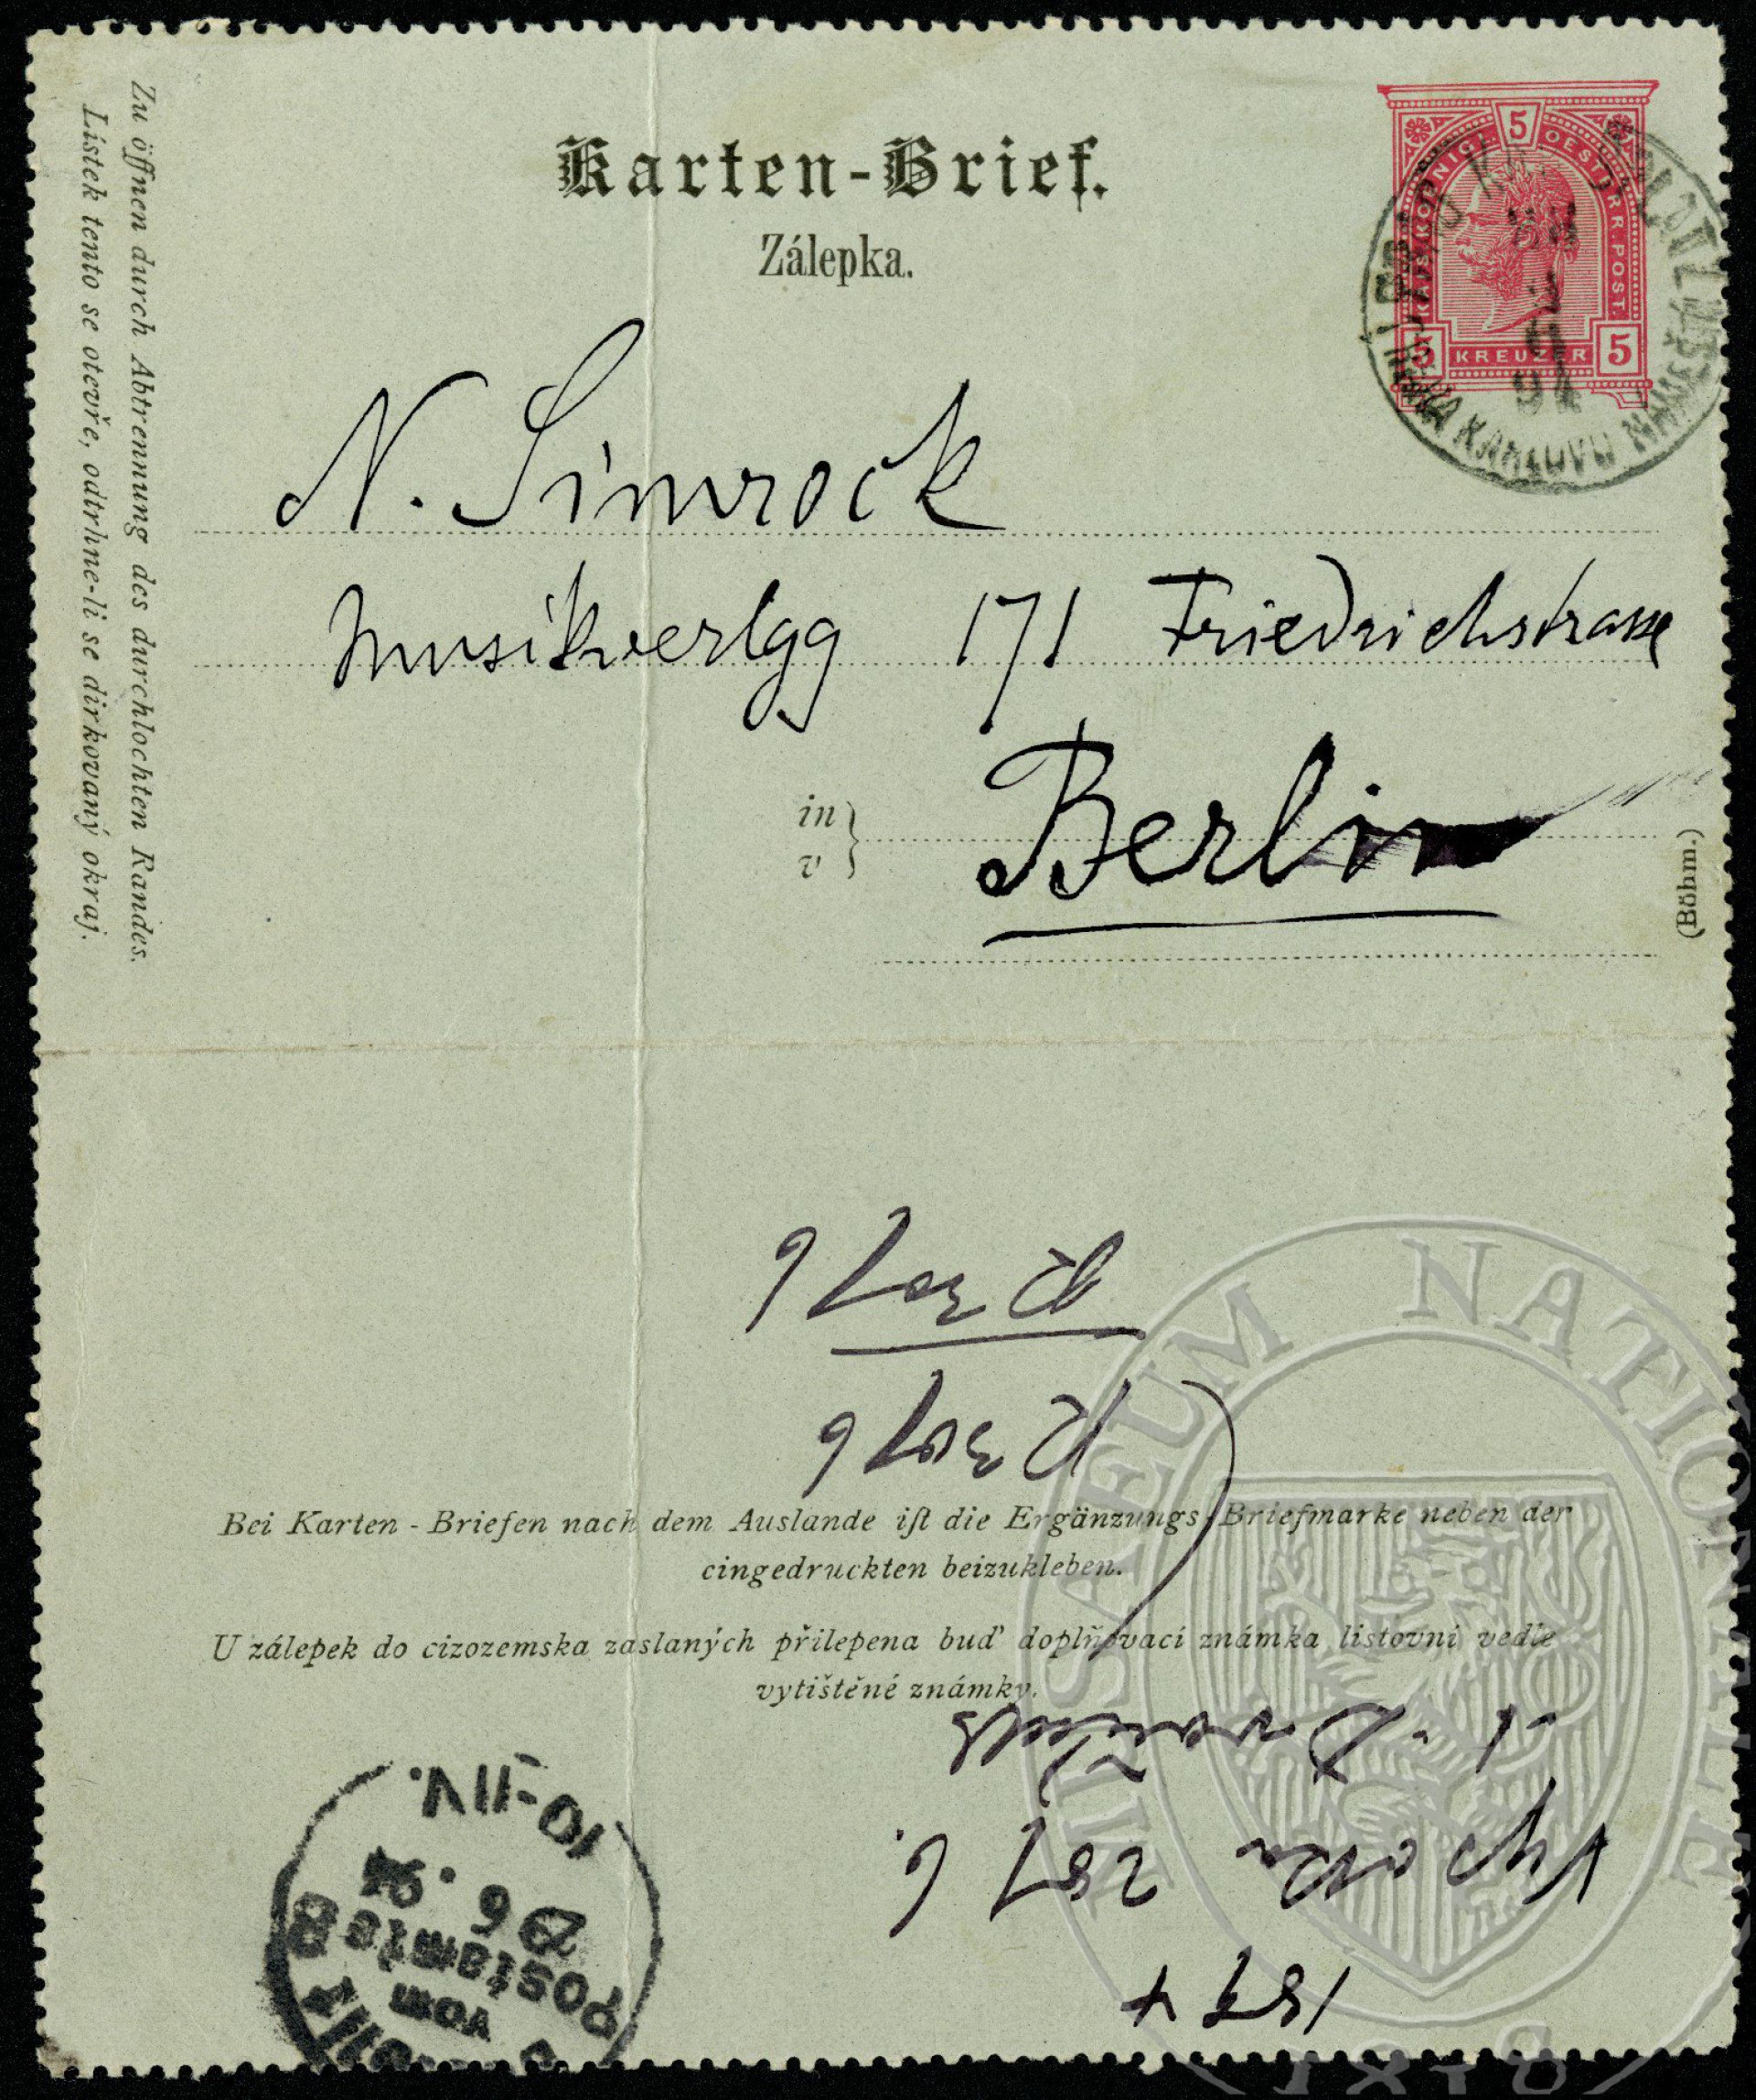 Karten-Brief.
Zálepka.
5
KAIS. KÖNIGL. OESTERR. POST
5 KREUZER 5
N. Simrock
Musikverlag 171 Friedrichstrasse
in
v
Berlin
(Böhm.)
Zu öffnen durch Abtrennung des durchlochten Randes.
Lístek tento se otevře, odtrhne-li se dirkovaný okraj.
Bei Karten-Briefen nach dem Auslande iſt die Ergänzungs-Briefmarke neben der
eingedruckten beizukleben.
U zálepek do cizozemska zaslaných přilepena buď doplňovací známka listovní vedle
vytištěné známky.
1894
Vysoka 28/ 6.
A. Dvořák
vom
Postamte 8
29 6. 94
10-11V.
MUSAEUM NATIONALE
1818